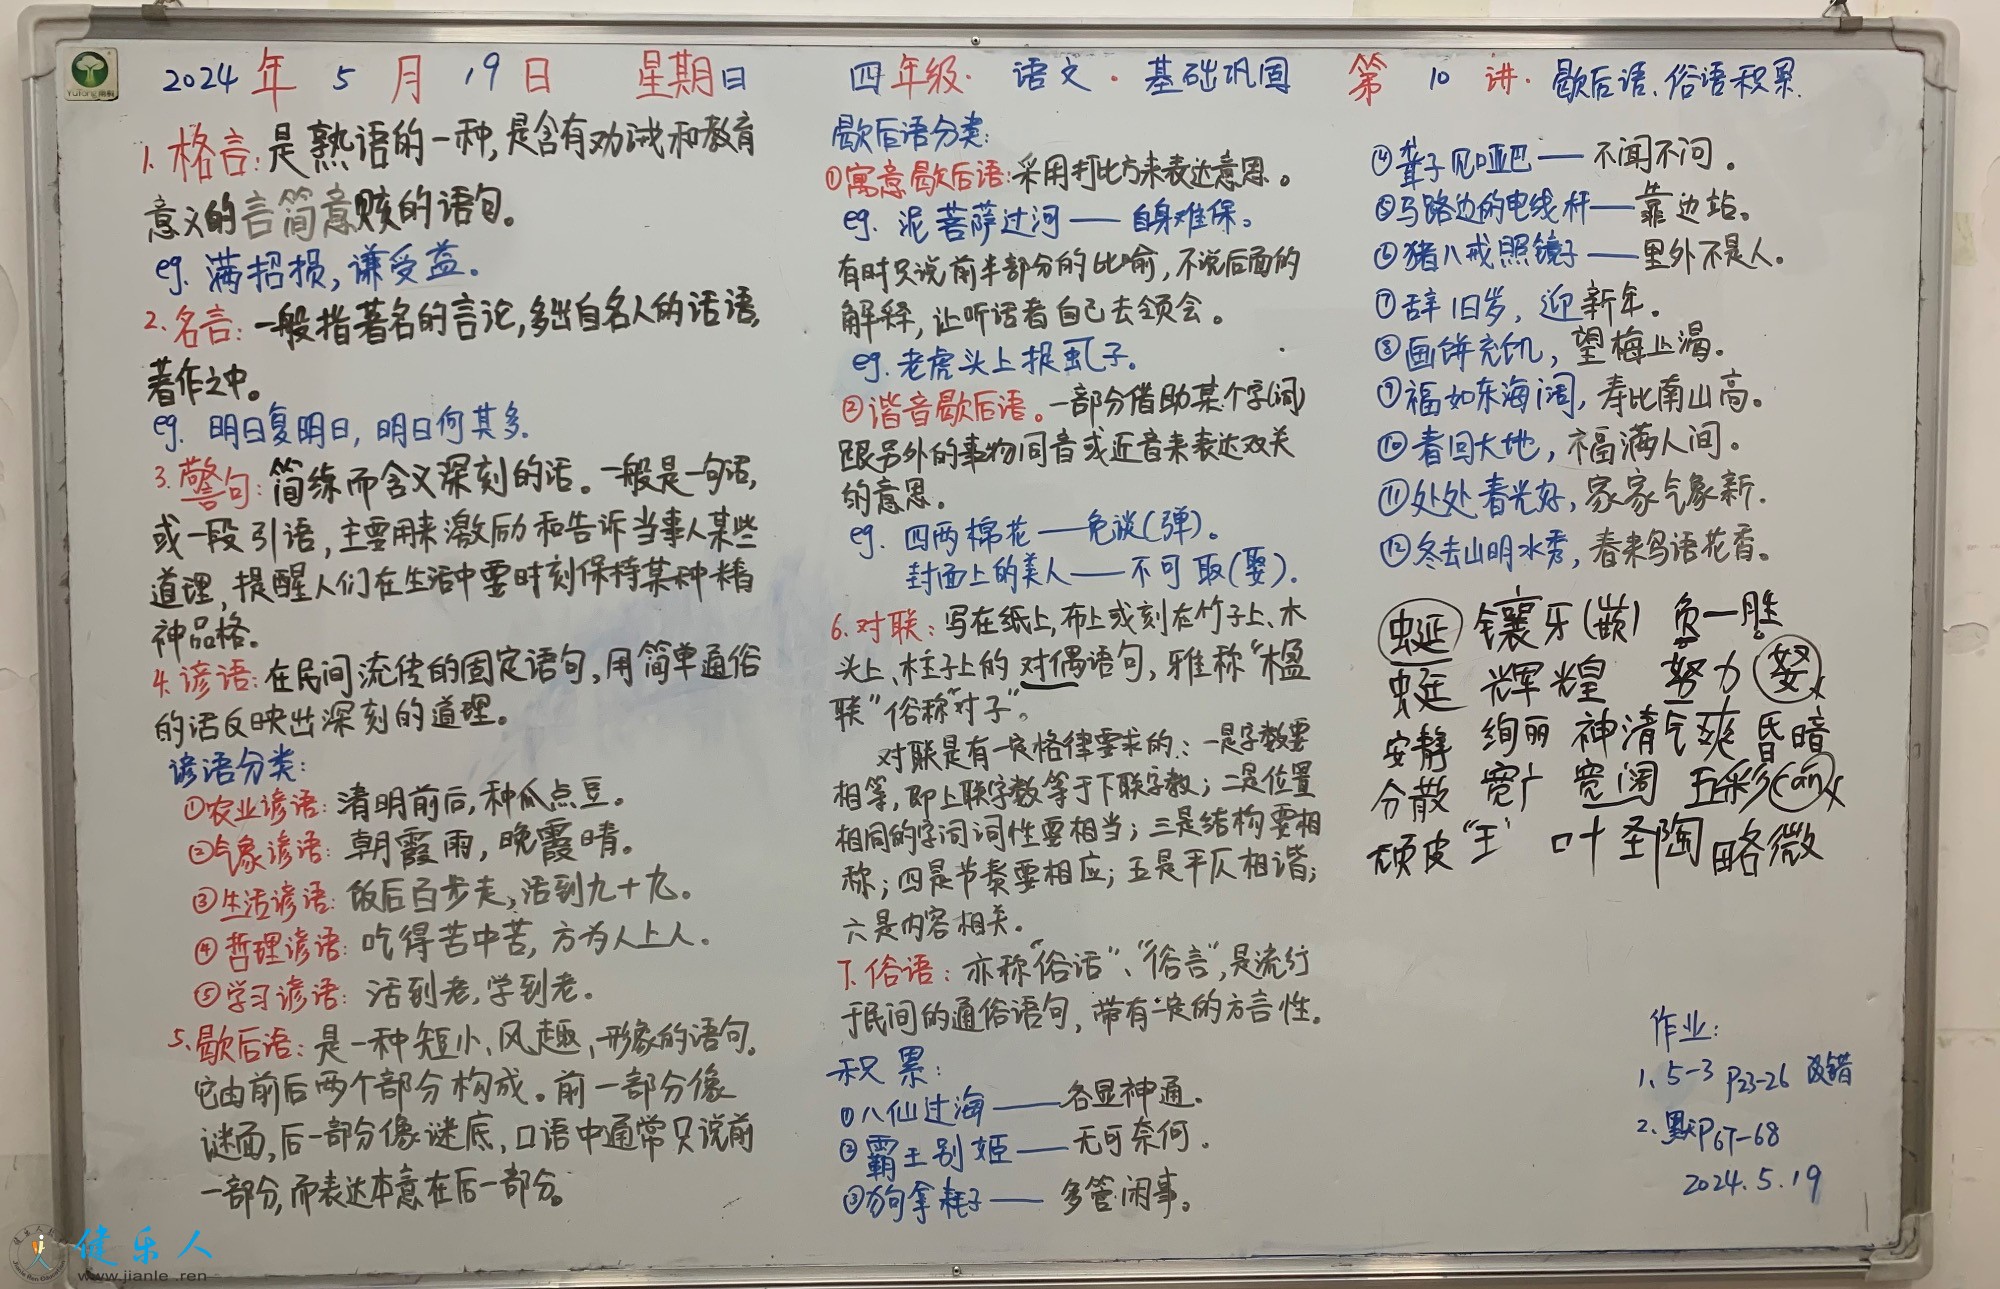 2024年5月19日 星期日 四年级·语文·基础巩固 第10讲·歇后语、俗语积累.
1. 格言:是熟语的一种,是含有劝诫和教育
意义的言简意赅的语句。
eg. 满招损,谦受益.
2. 名言:一般指著名的言论,多出自名人的话语,
著作之中。
eg. 明日复明日,明日何其多.
3. 警句:简练而含义深刻的话。一般是一句话,
或一段引语,主要用来激励和告诉当事人某些
道理,提醒人们在生活中要时刻保持某种精
神品格。
4. 谚语:在民间流传的固定语句,用简单通俗
的话反映出深刻的道理。
谚语分类:
①农业谚语:清明前后,种瓜点豆。
②气象谚语:朝霞雨,晚霞晴。
③生活谚语:饭后百步走,活到九十九。
④哲理谚语:吃得苦中苦,方为人上人.
⑤学习谚语:活到老,学到老.
5. 歇后语:是一种短小、风趣、形象的语句.
它由前后两个部分构成。前一部分像
谜面,后一部分像谜底,口语中通常只说前
一部分,而表达本意在后一部分。
歇后语分类:
①寓意歇后语:采用打比方来表达意思。
eg. 泥菩萨过河——自身难保。
有时只说前半部分的比喻,不说后面的
解释,让听话者自己去领会。
eg. 老虎头上捉虱子.
②谐音歇后语。一部分借助某个字(词)
跟另外的事物同音或近音来表达双关
的意思.
eg. 四两棉花——免谈(弹)。
封面上的美人——不可取(娶).
6. 对联:写在纸上,布上或刻在竹子上、木
头上、柱子上的对偶语句,雅称“楹
联”俗称“对子”。
对联是有一定格律要求的:一是字数要
相等,即上联字数等于下联字数;二是位置
相同的字词词性要相当;三是结构要相
称;四是节奏要相应;五是平仄相谐;
六是内容相关.
7. 俗语:亦称“俗话”、“俗言”,是流行
于民间的通俗语句,带有一定的方言性.
积累:
①八仙过海——各显神通.
②霸王别姬——无可奈何.
③狗拿耗子——多管闲事。
④聋子见哑巴——不闻不问.
⑤马路边的电线杆——靠边站。
⑥猪八戒照镜子——里外不是人.
⑦辞旧岁,迎新年.
⑧画饼充饥,望梅止渴.
⑨福如东海阔,寿比南山高。
⑩春回大地,福满人间.
⑪处处春光好,家家气象新.
⑫冬去山明水秀,春来鸟语花香。
蜒 镶牙(嵌) 负一胜
蜓 辉煌 努力
安静 绚丽 神清气爽 昏暗
分散 宽广 宽阔 五彩 can
顽皮“王” 叶圣陶 略微
作业:
1、5-3 P23-26 改错
2. 默P67-68
2024.5.19
健乐人
www.jianle.ren